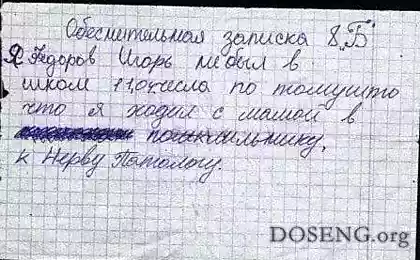 Обеснительная записка 8„Б"
Я Федоров Игорь небыл в
школи 11,04 числа по томушто
что я ходил с мамой в
к Нерву Патологу.
DOSENG.org